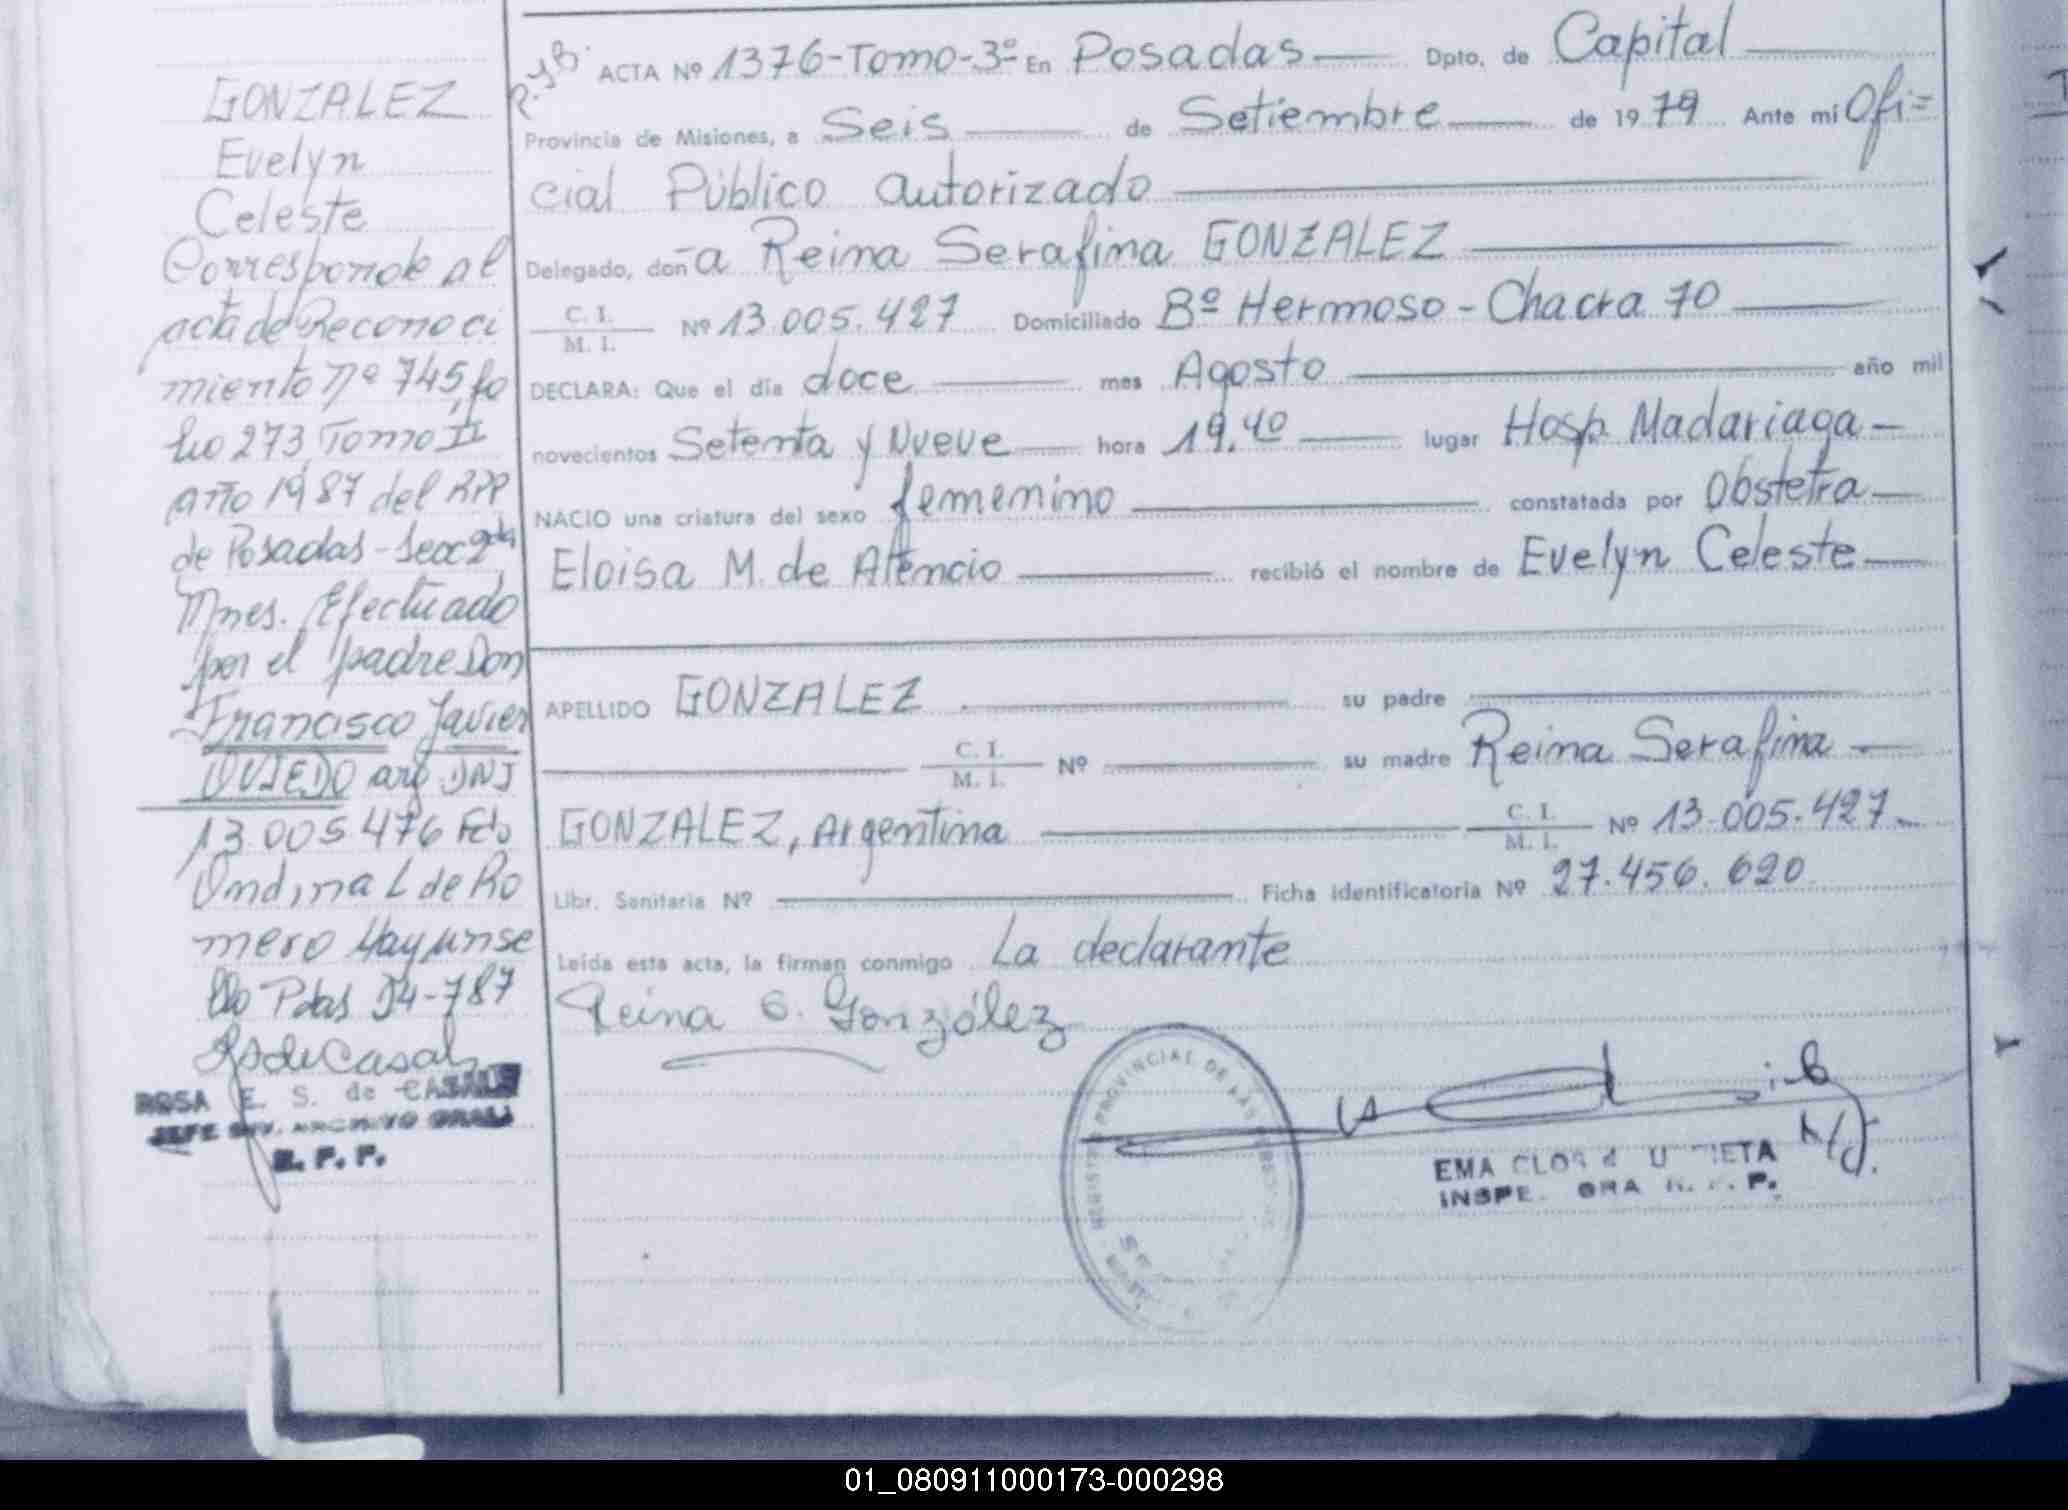 GONZALEZ
Evelyn
Celeste
Corresponde al
acta de Reconoci
miento nº 745, fo
lio 273 Tomo II
año 1987 del RPP
de Posadas - Secc 2da
Mnes. Efectuado
por el padre Don
Francisco Javier
OVIEDO arg DNI
13.005.476 Fdo
Ondina L de Ro
mero
Pdas 14-787
ROSA E. S. de CASALS
JEFE DIV. ARCHIVO GRAL
R. P. P.
ACTA Nº 1376-Tomo-3º En Posadas Dpto. de Capital
Provincia de Misiones, a Seis de Setiembre de 1979 Ante mí Ofi=
cial Público autorizado
Delegado, doña Reina Serafina GONZALEZ
C. I.
M. I. Nº 13.005.427 Domiciliado Bº Hermoso - Chacra 70
DECLARA: Que el día doce mes Agosto año mil
novecientos Setenta y Nueve hora 19.40 lugar Hosp. Madariaga -
NACIO una criatura del sexo femenino constatada por Obstetra
Eloisa M. de Atencio recibió el nombre de Evelyn Celeste
APELLIDO GONZALEZ su padre
C. I.
M. I. Nº su madre Reina Serafina
GONZALEZ, Argentina C. I.
M. I. Nº 13.005.427
Libr. Sanitaria Nº Ficha Identificatoria Nº 27.456.620
Leída esta acta, la firman conmigo La declarante
Reina S. González
REGISTRO PROVINCIAL DE LAS PERSONAS
EMA
01_080911000173-000298